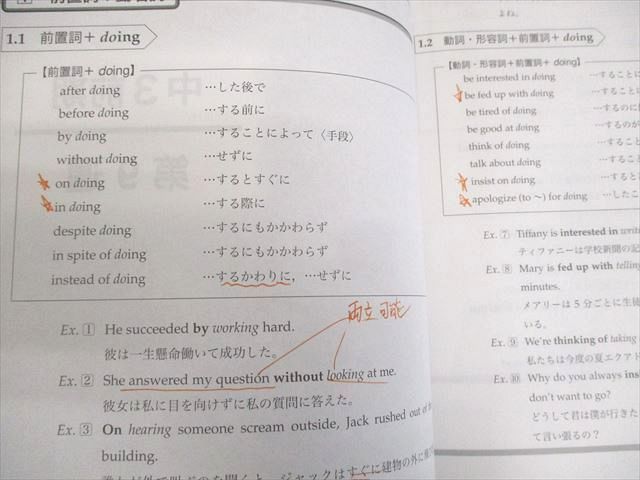 1.1 前置詞+ doing
【前置詞+ doing】
after doing …した後で
before doing …する前に
by doing …することによって〈手段〉
without doing …せずに
on doing …するとすぐに
in doing …する際に
despite doing …するにもかかわらず
in spite of doing …するにもかかわらず
instead of doing …するかわりに,…せずに
両立可能
Ex. 1 He succeeded by working hard.
彼は一生懸命働いて成功した。
Ex. 2 She answered my question without looking at me.
彼女は私に目を向けずに私の質問に答えた。
Ex. 3 On hearing someone scream outside, Jack rushed out of
building.
ジャックはすぐに建物の外に
よね。
1.2 動詞・形容詞+前置詞+ doing
【動詞・形容詞+前置詞+ doing】
be interested in doing …することに
be fed up with doing …することに
be tired of doing …するのに
be good at doing …するのが
think of doing …すること
talk about doing …すること
insist on doing …すると
apologize (to ~) for doing …したこ
Ex. ⑦ Tiffany is interested in
ティファニーは学校新聞の
Ex. ⑧ Mary is fed up with telling
minutes.
メアリーは5分ごとに生徒
いる。
Ex. ⑨ We're thinking of taking
私たちは今度の夏エクアド
Ex. ⑩ Why do you always
don't want to go?
どうして君は僕が行きた
て言い張るの？